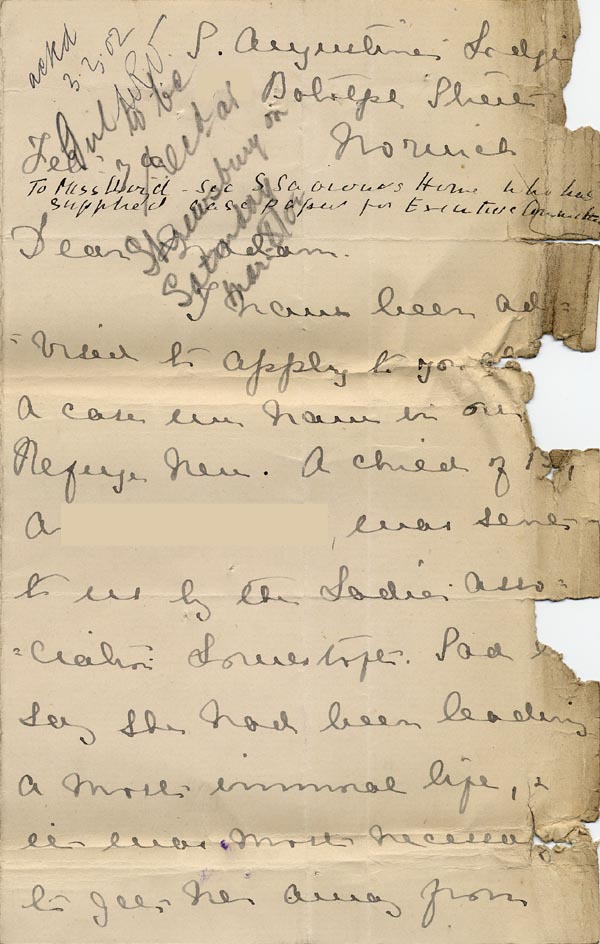 ackd
3.3.02
S. Augustine's Lodge
Botolph Street
Norwich
Feb
to be
at
Shrewsbury on
Saturday
March 8/02
To Miss - see S Saviours Home who has
supplied case paper for Executive Committee
Dear Madam.
I have been ad=
=vised to apply to you
a case we have in our
Refuge here. A child of
A , was sent
to us by the Ladies Asso=
=ciation Lowestoft. Sad
say she had been leading
a most immoral life, &
it was most necessary
to get her away from